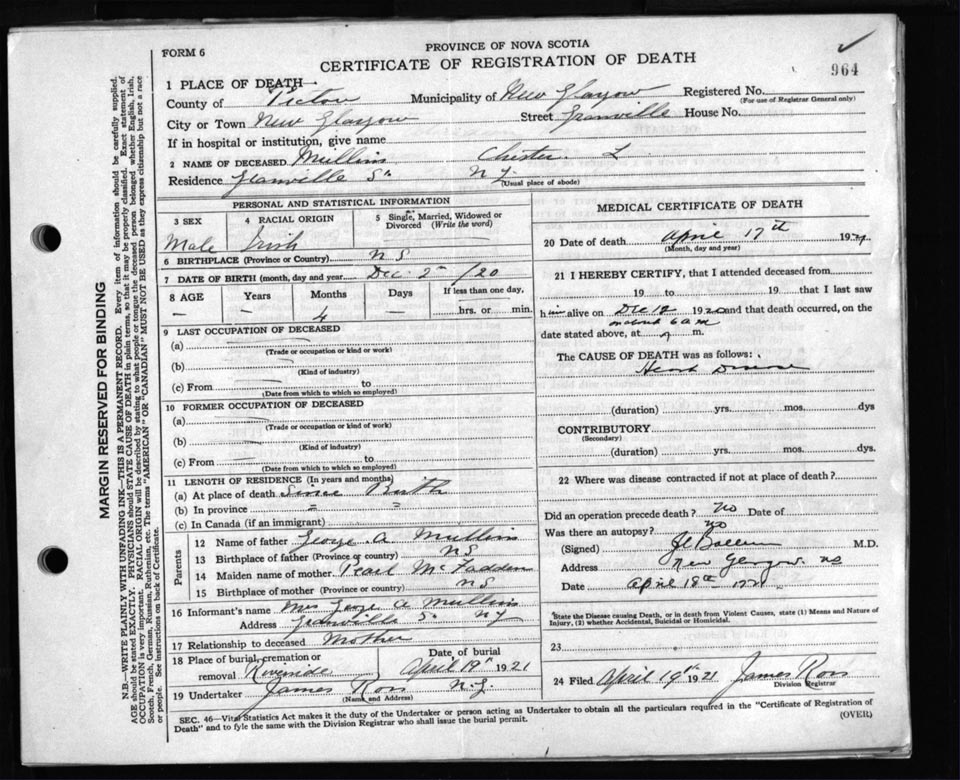 FORM 6
PROVINCE OF NOVA SCOTIA
CERTIFICATE OF REGISTRATION OF DEATH
964
1 PLACE OF DEATH
County of Pictou Municipality of New Glasgow Registered No.
(For use of Registrar General only)
City or Town New Glasgow Street Granville House No.
If in hospital or institution, give name
2 NAME OF DECEASED Mullins Chester L
Residence Granville St N G
(Usual place of abode)
PERSONAL AND STATISTICAL INFORMATION
3 SEX 4 RACIAL ORIGIN 5 Single, Married, Widowed or Divorced (Write the word)
Male Irish
6 BIRTHPLACE (Province or Country) N S
7 DATE OF BIRTH (month, day and year) Dec 2nd /20
8 AGE Years Months Days If less than one day,
— — 4 — hrs. or min.
9 LAST OCCUPATION OF DECEASED
(a)
(Trade or occupation or kind or work)
(b)
(Kind of industry)
(c) From to
(Date from which to which so employed)
10 FORMER OCCUPATION OF DECEASED
(a)
(Trade or occupation or kind of work)
(b)
(Kind of industry)
(c) From to
(Date from which to which so employed)
11 LENGTH OF RESIDENCE (In years and months)
(a) At place of death Since Birth
(b) In province " "
(c) In Canada (if an immigrant)
Parents
12 Name of father George A Mullins
13 Birthplace of father (Province or country) N S
14 Maiden name of mother Pearl McFadden
15 Birthplace of mother (Province or country) N S
16 Informant's name Mrs George A Mullins
Address Granville St N G
17 Relationship to deceased Mother
18 Place of burial, cremation or removal Riverside
Date of burial April 19th 1921
19 Undertaker James Ross N.G.
(Name and Address)
MEDICAL CERTIFICATE OF DEATH
20 Date of death April 17th 1921
(Month, day and year)
21 I HEREBY CERTIFY, that I attended deceased from
19 to 19 that I last saw
him alive on Dec 18 1920 and that death occurred, on the
date stated above, at m.
6 am
The CAUSE OF DEATH was as follows:
Heart Disease
(duration) yrs. mos. dys
CONTRIBUTORY
(Secondary)
(duration) yrs. mos. dys.
22 Where was disease contracted if not at place of death?
Did an operation precede death? No Date of
Was there an autopsy? No
(Signed) M.D.
Address New Glasgow NS
Date April 18th 1921
State the Disease causing Death, or in death from Violent Causes, state (1) Means and Nature of Injury, (2) whether Accidental, Suicidal or Homicidal.
23
24 Filed April 19th 1921 James Ross
Division Registrar
SEC. 46—Vital Statistics Act makes it the duty of the Undertaker or person acting as Undertaker to obtain all the particulars required in the "Certificate of Registration of
Death" and to fyle the same with the Division Registrar who shall issue the burial permit.
(OVER)
MARGIN RESERVED FOR BINDING
N.B.—WRITE PLAINLY WITH UNFADING INK—THIS IS A PERMANENT RECORD. Every item of information should be carefully supplied.
AGE should be stated EXACTLY. PHYSICIANS should STATE CAUSE OF DEATH in plain terms, so that it may be properly classified. Exact statement of
OCCUPATION is very important. RACIAL ORIGIN will be described by stating to what people or tongue the deceased person belonged whether English, Irish,
Scotch, French, German, Russian, Ruthenian, etc. The terms "AMERICAN" OR "CANADIAN" MUST NOT BE USED as they express citizenship but not a race
or people. See instructions on back of Certificate.